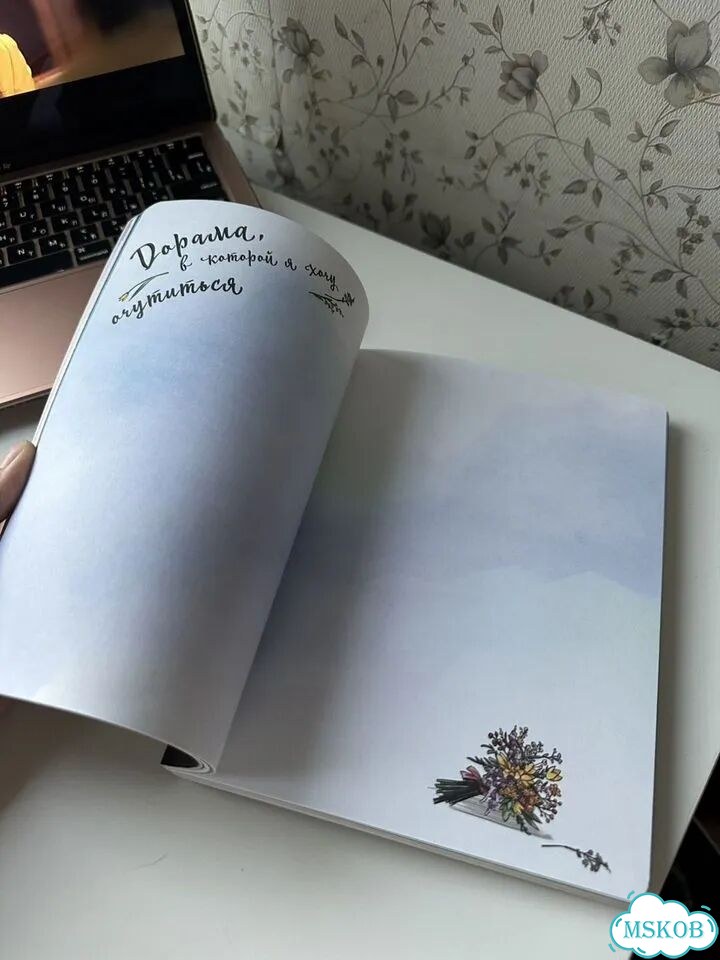 Дорама,
в которой я хочу
очутиться
MSKOB